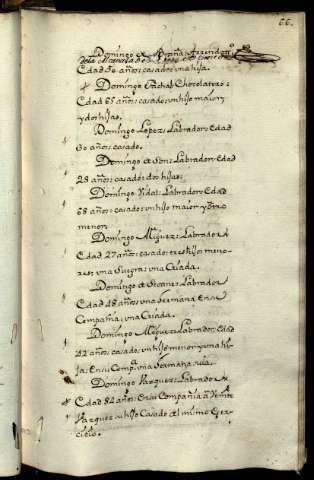 66.
Domingo de
Edad 50 años: casado: una hija.
Domingo Chocolatero:
Edad 65 años: casado: un hijo maior,
y dos hijas.
Domingo Lopez: Labrador: Edad
50 años: casado.
Domingo de Son: Labrador: Edad
28 años: casado: dos hijas.
Domingo Vidal: Labrador: Edad
68 años: casado: un hijo maior y otro
menor.
Domingo Mĩguez: Labrador
Edad 27 años: casado: tres hijos meno-
res: una Suegra: una Criada.
Domingo de Seoane: Labrador
Edad 48 años: una hermana en su
Compañia: una Criada.
Domingo Mĩguez: Labrador: Edad
42 años: casado: un hijo menor y una hi-
ja: En su Compª una hermana
Domingo Vazquez: Labrador
Edad 82 años: En su Compañia
Vazquez su hijo Casado del mismo Exer-
cicio.